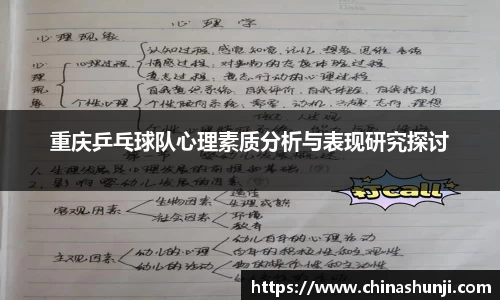 心 理 学
心理现象
认知过程，感觉 知觉，记忆，想象 思维 言语
心理过程 情感过程，对事物的态度体验过程
意志过程，意志行动的心理过程
自我意识系统，自我评价，自我体验，自我控制
个性心理 个性倾向系统，需要，动机，志向，理想
重庆乒乓球队心理素质分析与表现研究探讨
1. 生理发展是心理发展的前提和基础
打call
2. 影响婴幼儿发展的因素
客观因素 生物因素 遗传
生理成熟
社会因素 环境
教育
主观因素 幼儿的心理 幼儿自身的心理活动
幼儿的活动
https://www.chinashunji.com/